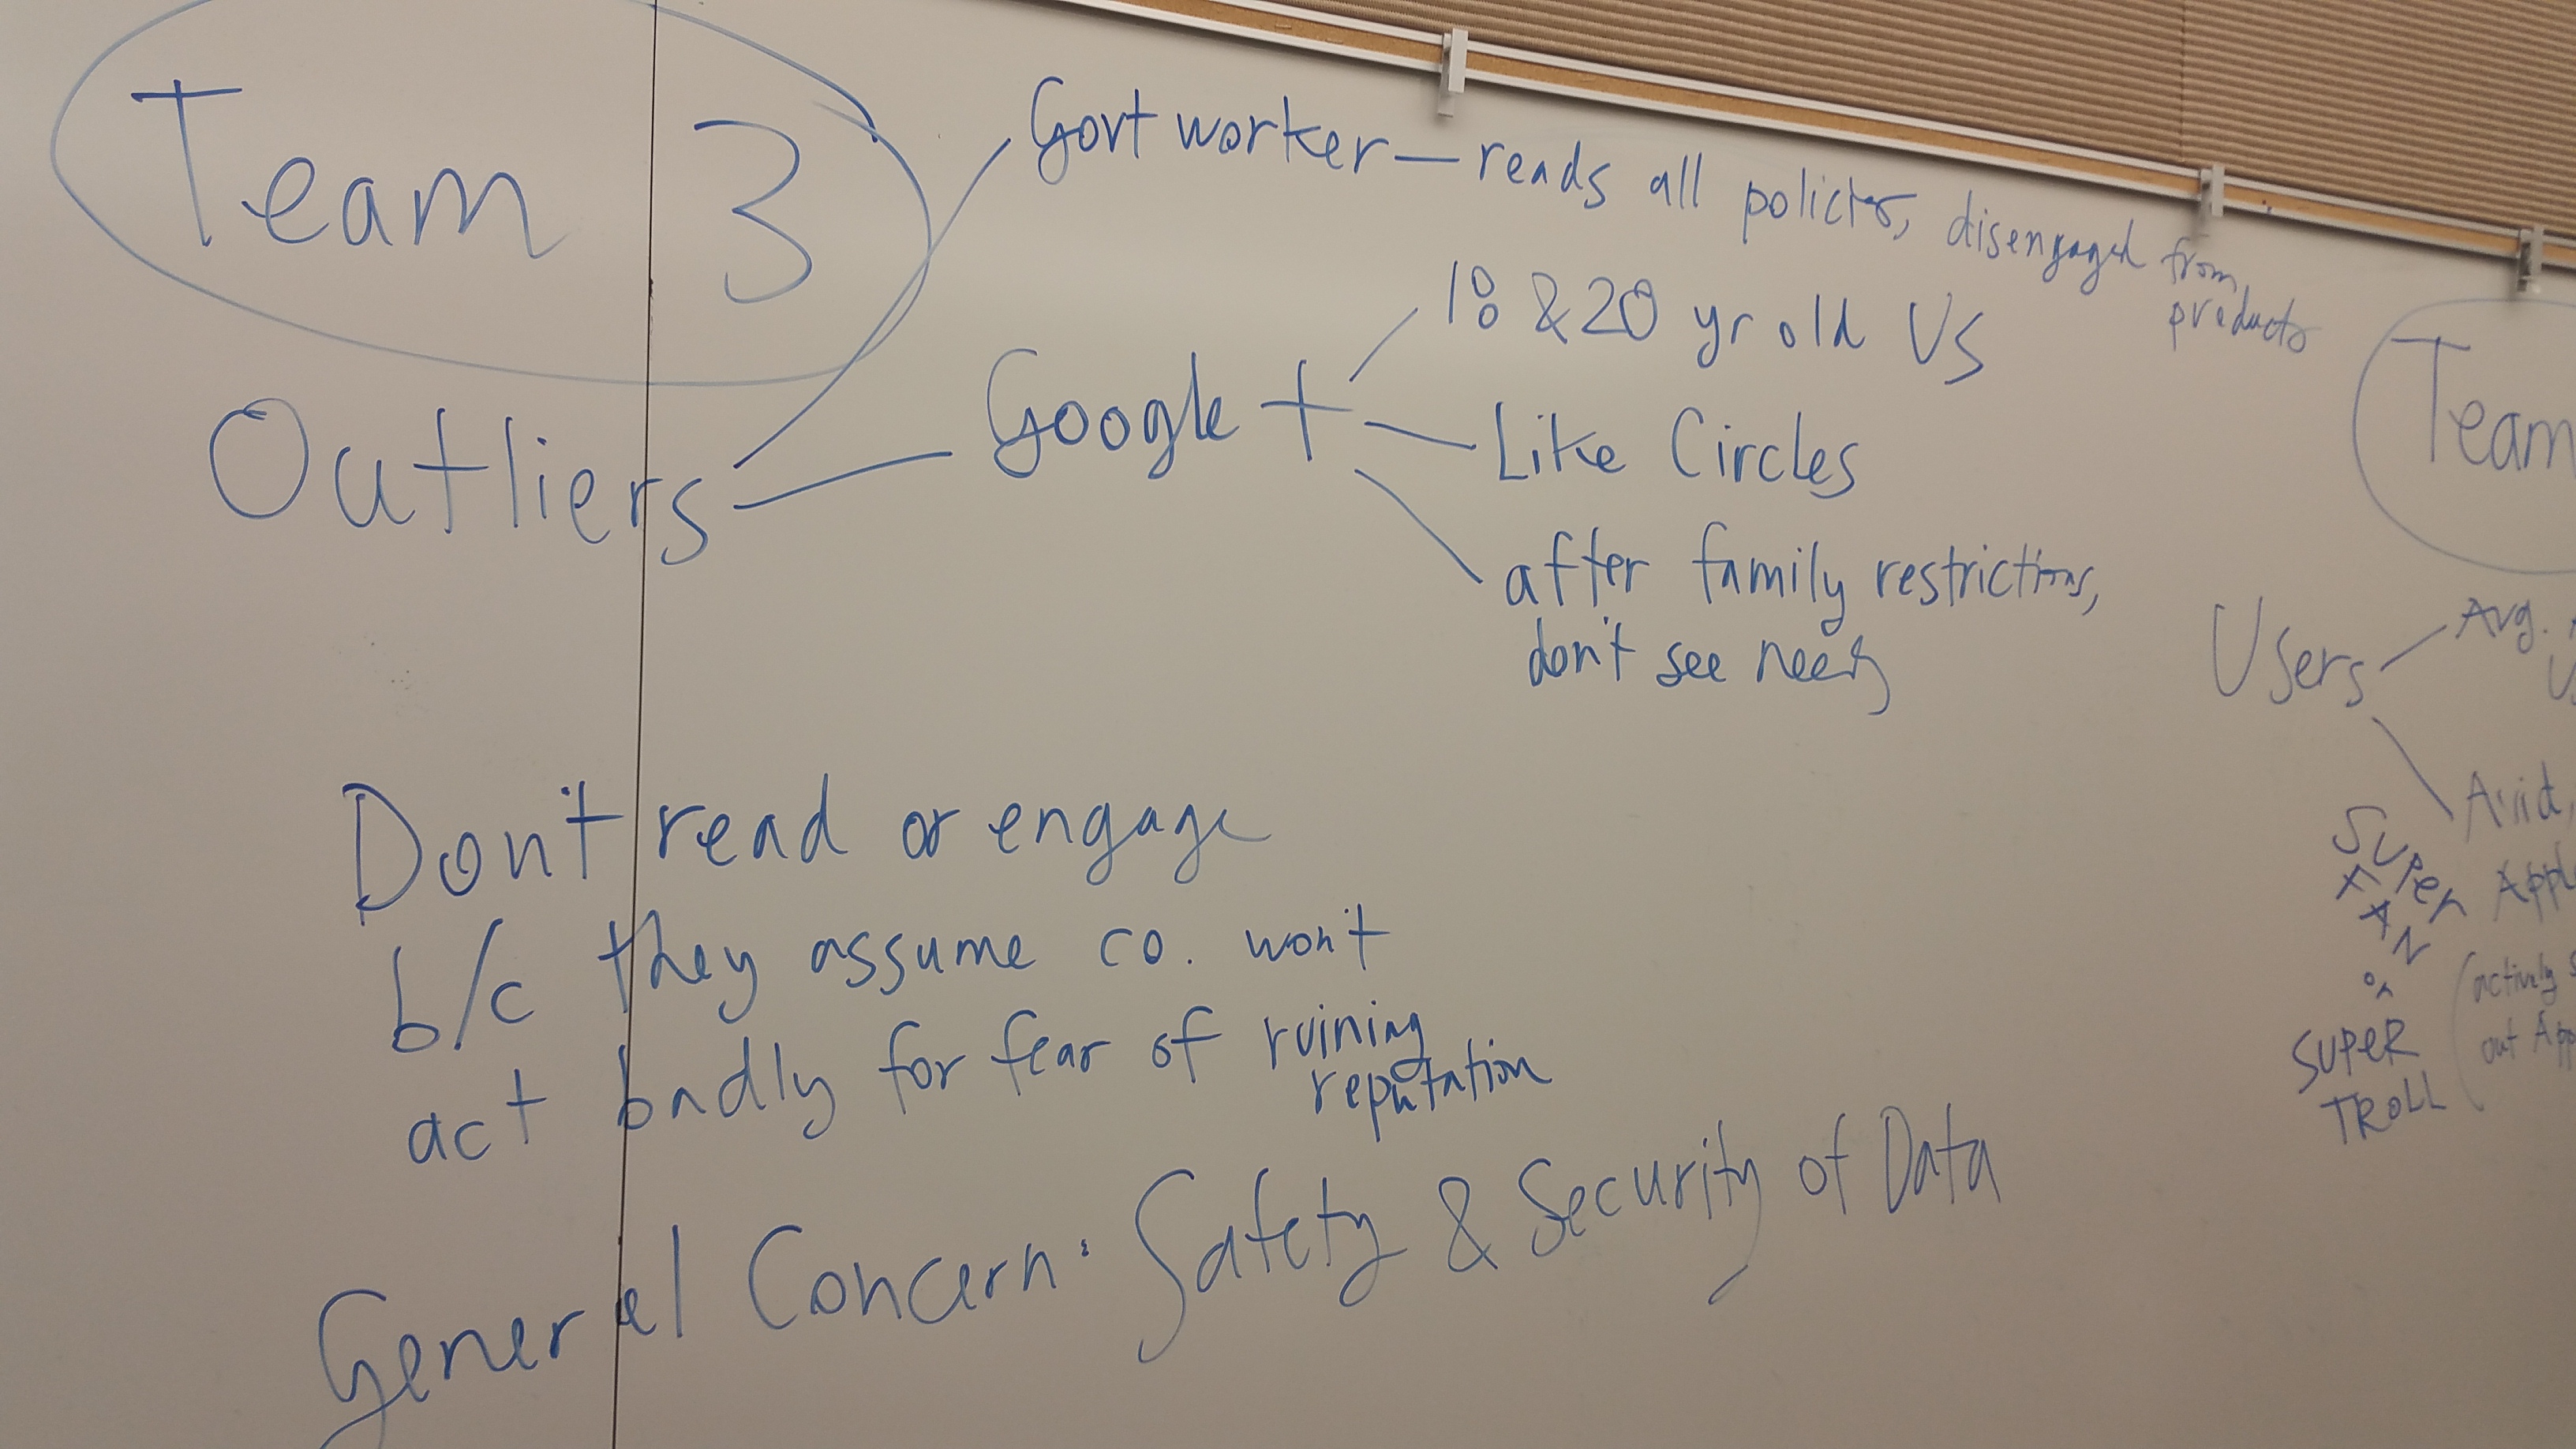 Team 3
Outliers
Govt worker — reads all policies, disengaged from
products
Google +
18 & 20 yr old US
Like Circles
after family restrictions,
don't see need
Don't read or engage
b/c they assume co. won't
act badly for fear of ruining
reputation
General Concern: Safety & Security of Data
Team
Users
Avg.
Avid
SUPER
FAN
or
SUPER
TROLL
(actively
out